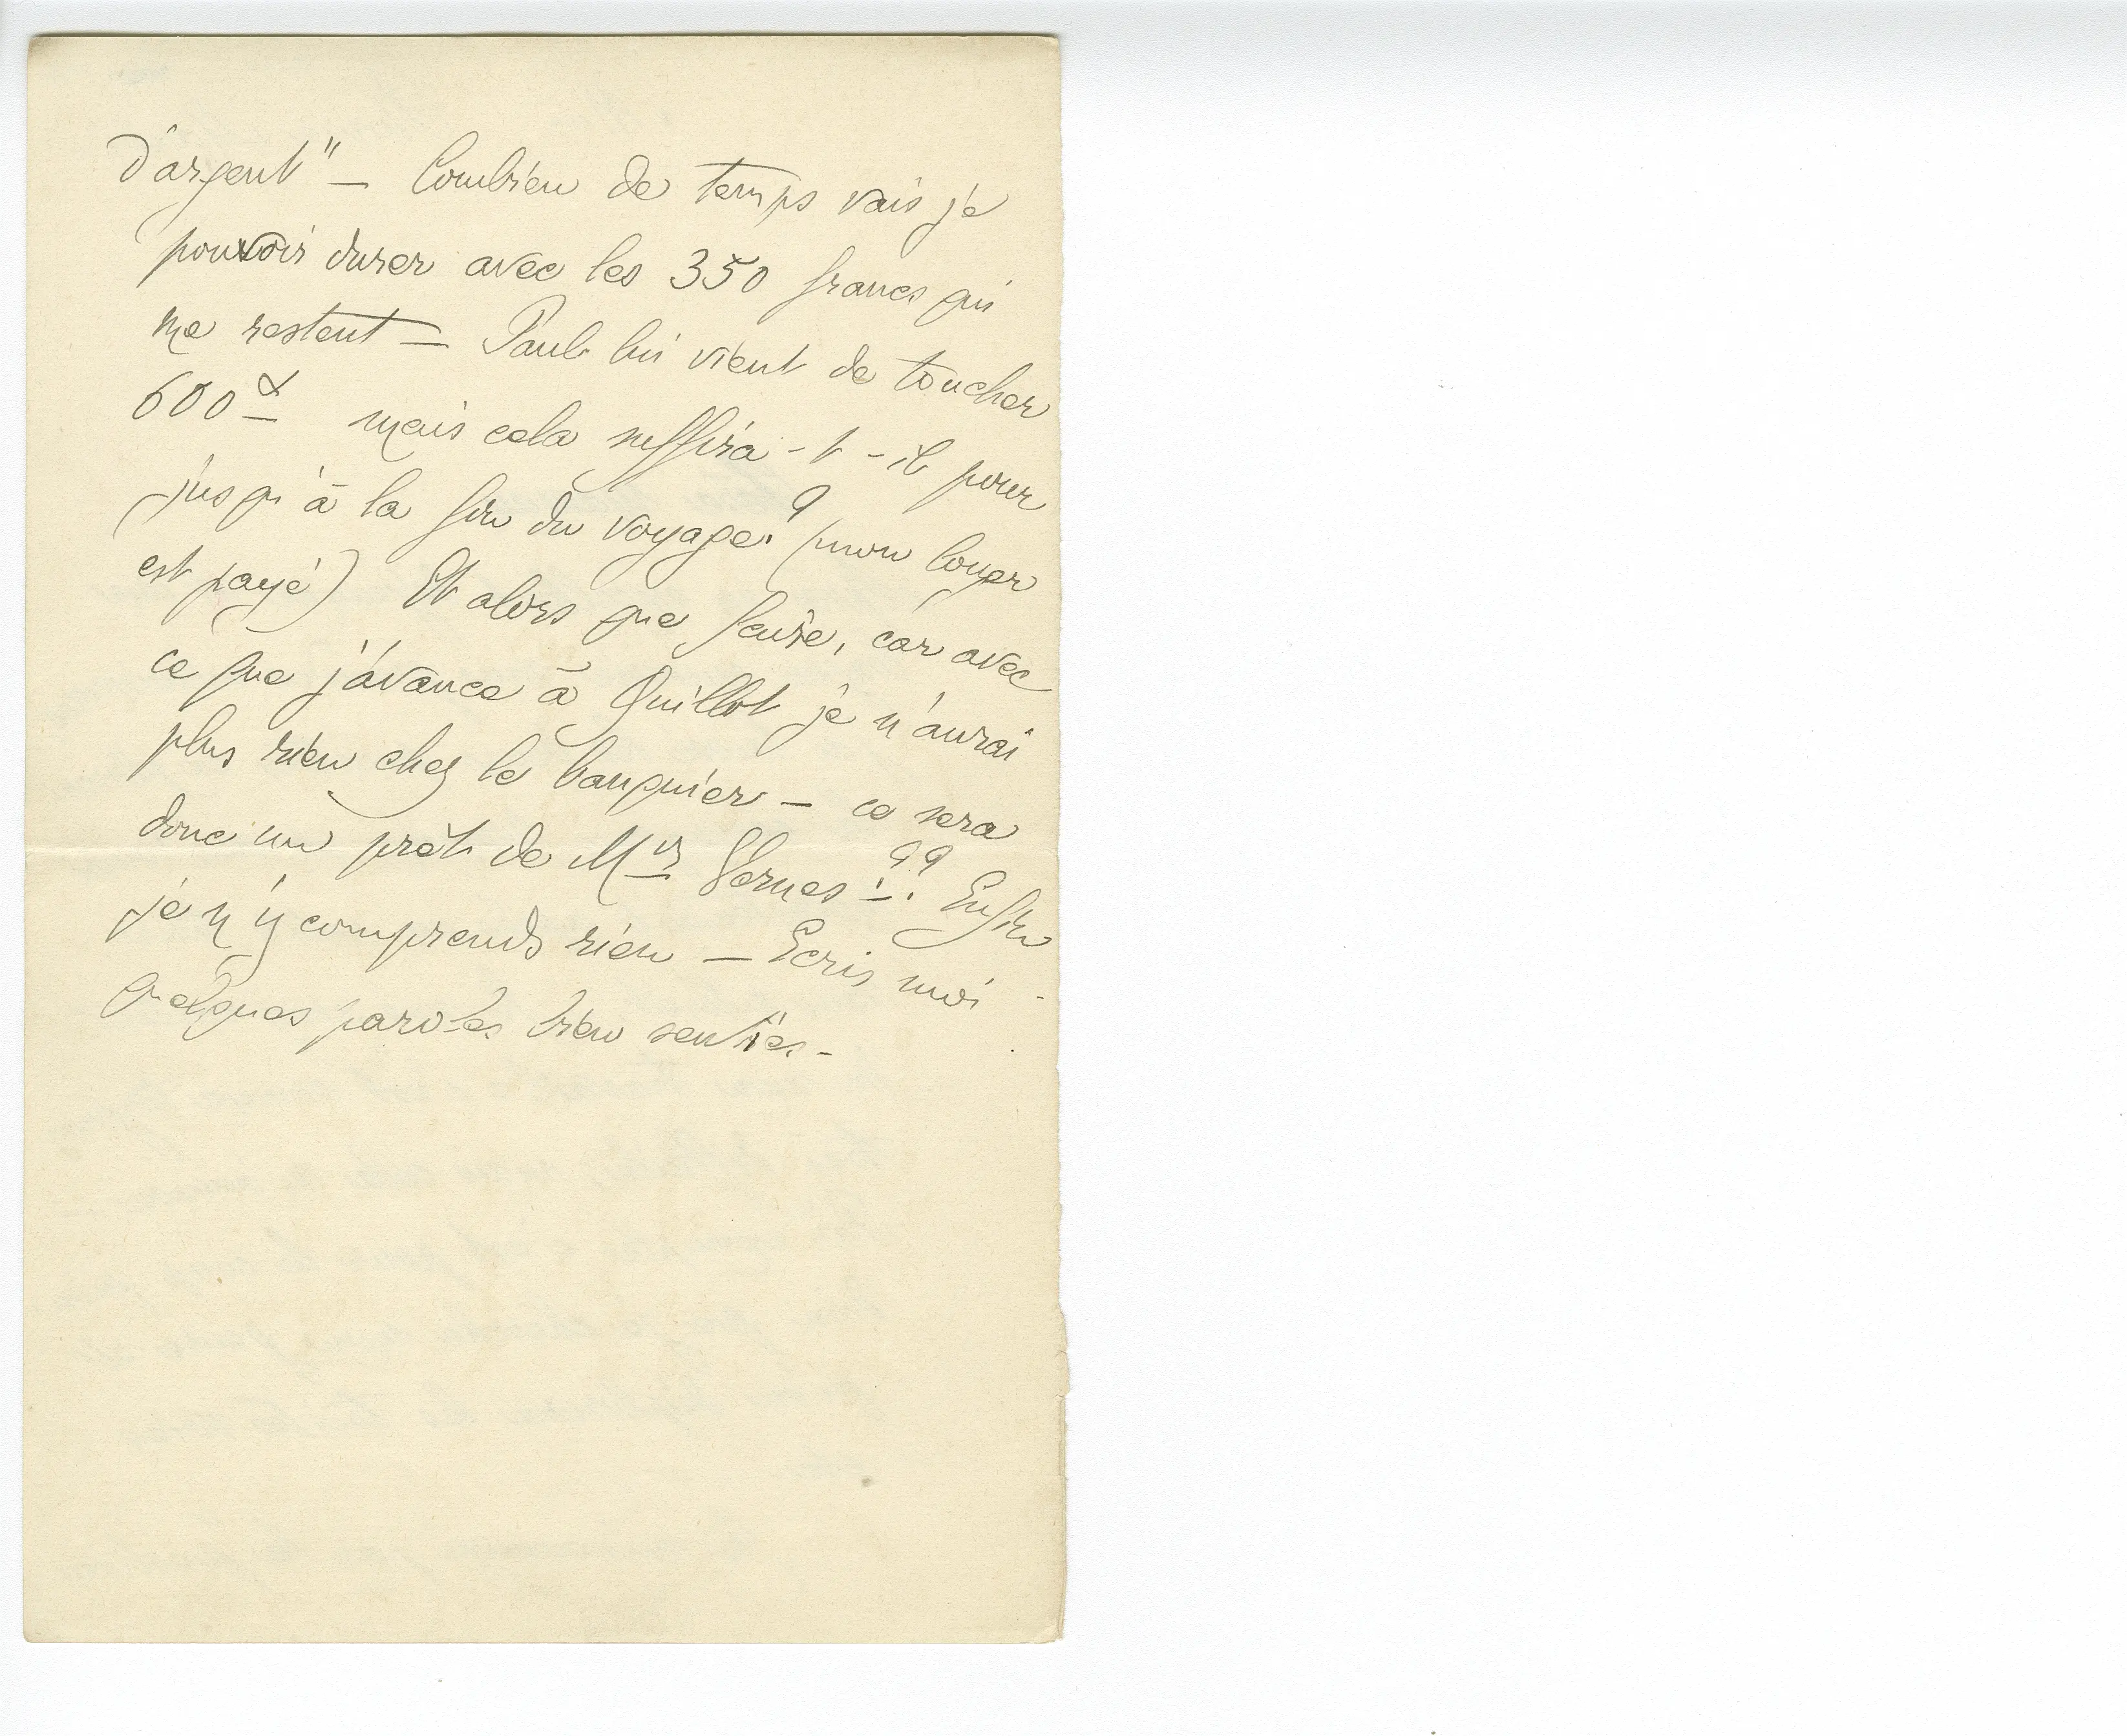 d'argent" — Combien de temps vais je
pouvoir durer avec les 350 francs qui
me restent — Paul lui vient de toucher
600 mais cela suffira-t-il pour
jusqu'à la fin du voyage? (mon loyer
est payé) Et alors que faire, car avec
ce que j'avance à Quillot je n'aurai
plus rien chez le banquier — ce sera
donc un prêt de Mrs Vernes?? Enfin
je n'y comprends rien — Ecris moi
quelques paroles bien senties -